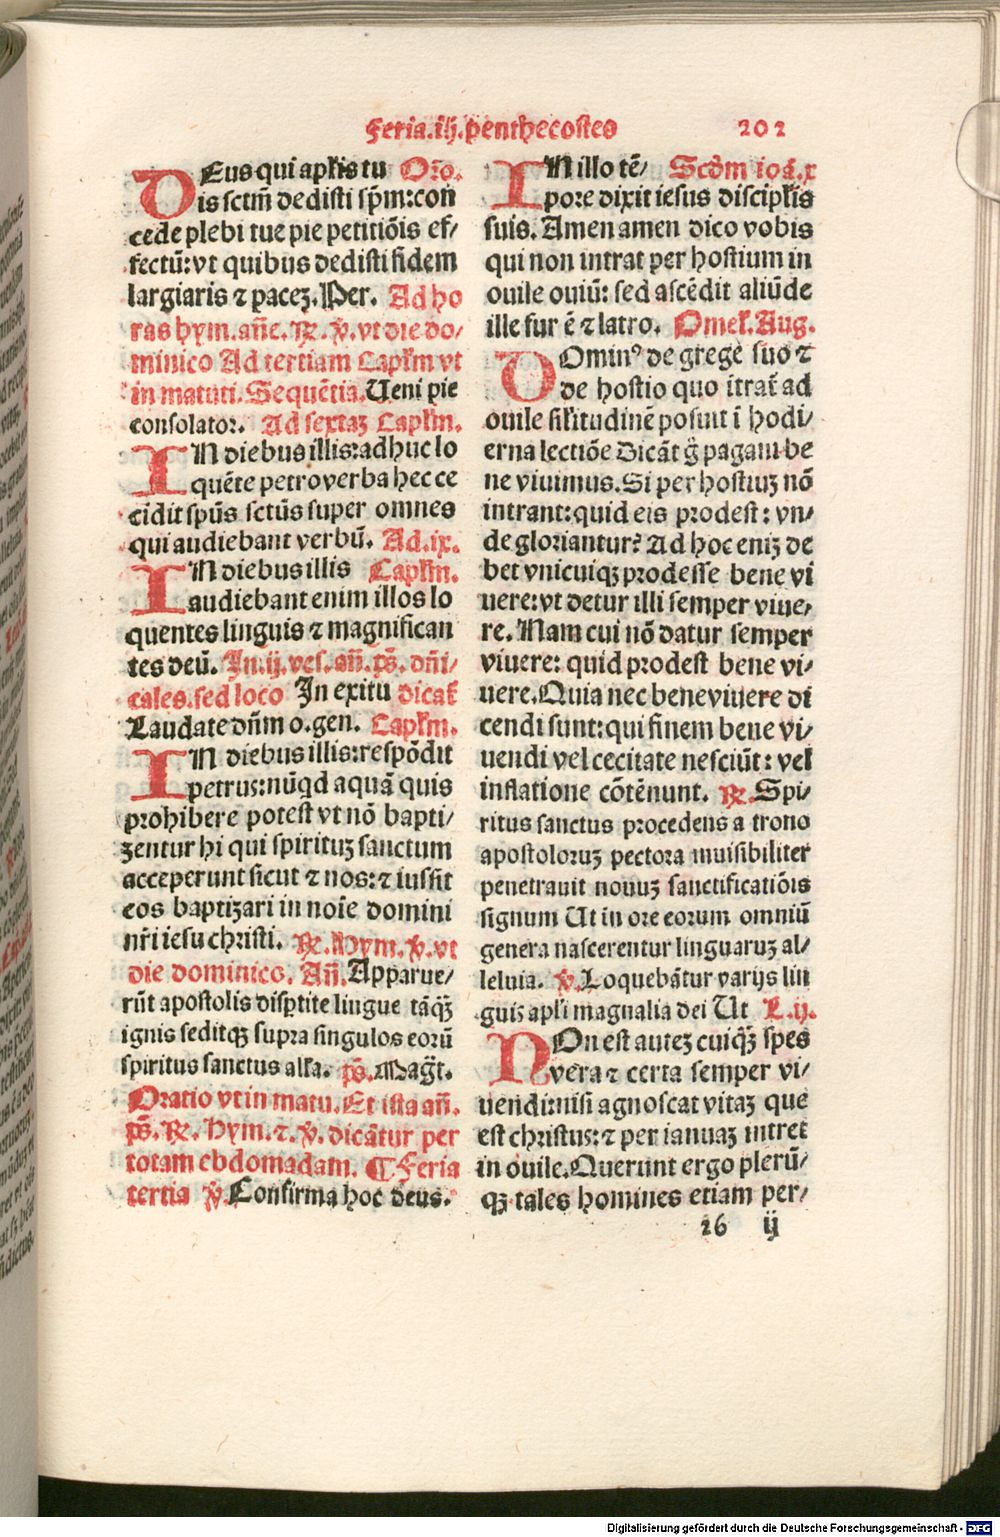 Feria.iij.penthecostes 202
DEus qui apl'is tu Orõ.
is sctm̃ dedisti sp̃m:con
cede plebi tue pie petitiõis ef/
fectũ:vt quibus dedisti fidem
largiaris ⁊ pacez.Per. Ad ho
ras hym.añe.℞.℣.vt die do/
minico Ad tertiam Capl'm vt
in matuti.Sequẽtia.Ueni pie
consolator. Ad sextaz Capl'm.
IN diebus illis:adhuc lo
quẽte petro verba hec ce
cidit spũs sctũs super omnes
qui audiebant verbũ. Ad.ix.
IN diebus illis Capl'm.
audiebant enim illos lo
quentes linguis ⁊ magnifican
tes deũ. In.ij.ves.añ.ps̃.dñi/
cales.sed loco In exitu dicat᷑
Laudate dñm o.gen. Capl'm.
IN diebus illis:respõdit
petrus:nũqd aquã quis
prohibere potest vt nõ bapti/
zentur hi qui spirituz sanctum
acceperunt sicut ⁊ nos:⁊ iussit
eos baptizari in noĩe domini
nr̃i iesu christi. ℞.Hym.℣.vt
die dominico. Añ.Apparue/
rũt apostolis disp̱tite lingue tãqȝ̃
ignis seditqȝ supra singulos eorũ
spiritus sanctus all'a. ps̃.Mag̃t.
Oratio vt in matu.Et ista añ.
ps̃.℞.Hym.⁊.℣.dicãtur per
totam ebdomadam. ¶Feria
tertia ℣.Confirma hoc deus.
IN illo tẽ/ Scd̃m ioã.x
pore dixit iesus discipl'is
suis.Amen amen dico vobis
qui non intrat per hostium in
ouile ouiũ: sed ascẽdit aliũde
ille fur ẽ ⁊ latro. Omel'.Aug.
DOminꝰ de grege suo ⁊
de hostio quo ĩtrat᷑ ad
ouile sil'itudinẽ posuit ĩ hodi/
erna lectiõe Dicãt g̃ pagani be
ne viuimus.Si per hostiuz nõ
intrant:quid eis prodest: vn/
de gloriantur? Ad hoc eniz de
bet vnicuiqȝ prodesse bene vi
uere:vt detur illi semper viue/
re.Nam cui nõ datur semper
viuere: quid prodest bene vi/
uere.Quia nec bene viuere di
cendi sunt:qui finem bene vi/
uendi vel cecitate nesciũt: vel
inflatione cõtẽnunt. ℞.Spi/
ritus sanctus procedens a trono
apostoloruz pectora inuisibiliter
penetrauit nouuz sanctificatiõis
signum Ut in ore eorum omniũ
genera nascerentur linguaruz al/
leluia. ℣.Loquebãtur varijs lin
guis apl'i magnalia dei Ut L.ij.
NOn est autez cuiqȝ̃ spes
vera ⁊ certa semper vi/
uendi:nisi agnoscat vitaz que
est christus:⁊ per ianuaz intret
in ouile.Querunt ergo plerũ/
qȝ tales homines etiam per/
26 ij
Digitalisierung gefördert durch die Deutsche Forschungsgemeinschaft - DFG